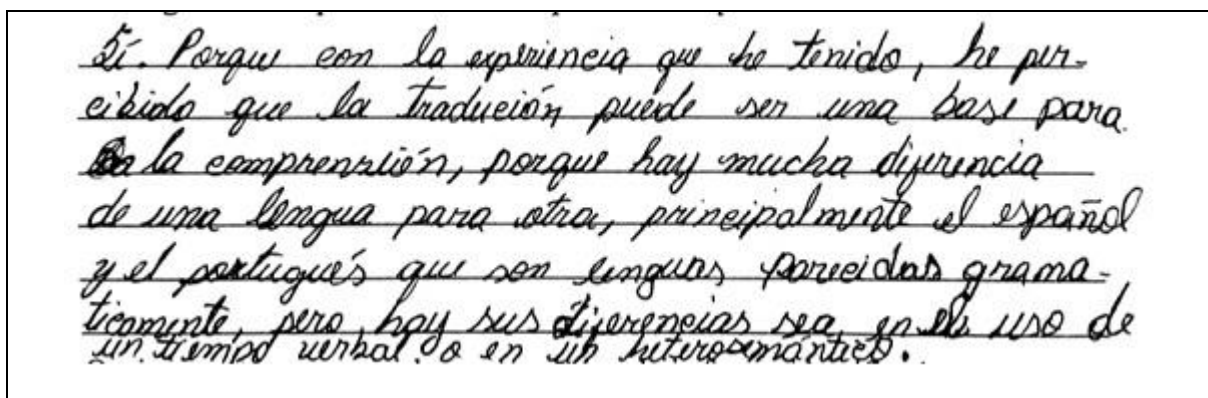 Sí. Porque con la experiencia que he tenido, he per-
cibido que la tradución puede ser una base para
la comprensión, porque hay mucha diferencia
de una lengua para otra, principalmente el español
y el portugués que son lenguas parecidas grama-
ticamente, pero, hay sus diferencias sea, en el uso de
un tiempo verbal o en un heterosemántico.